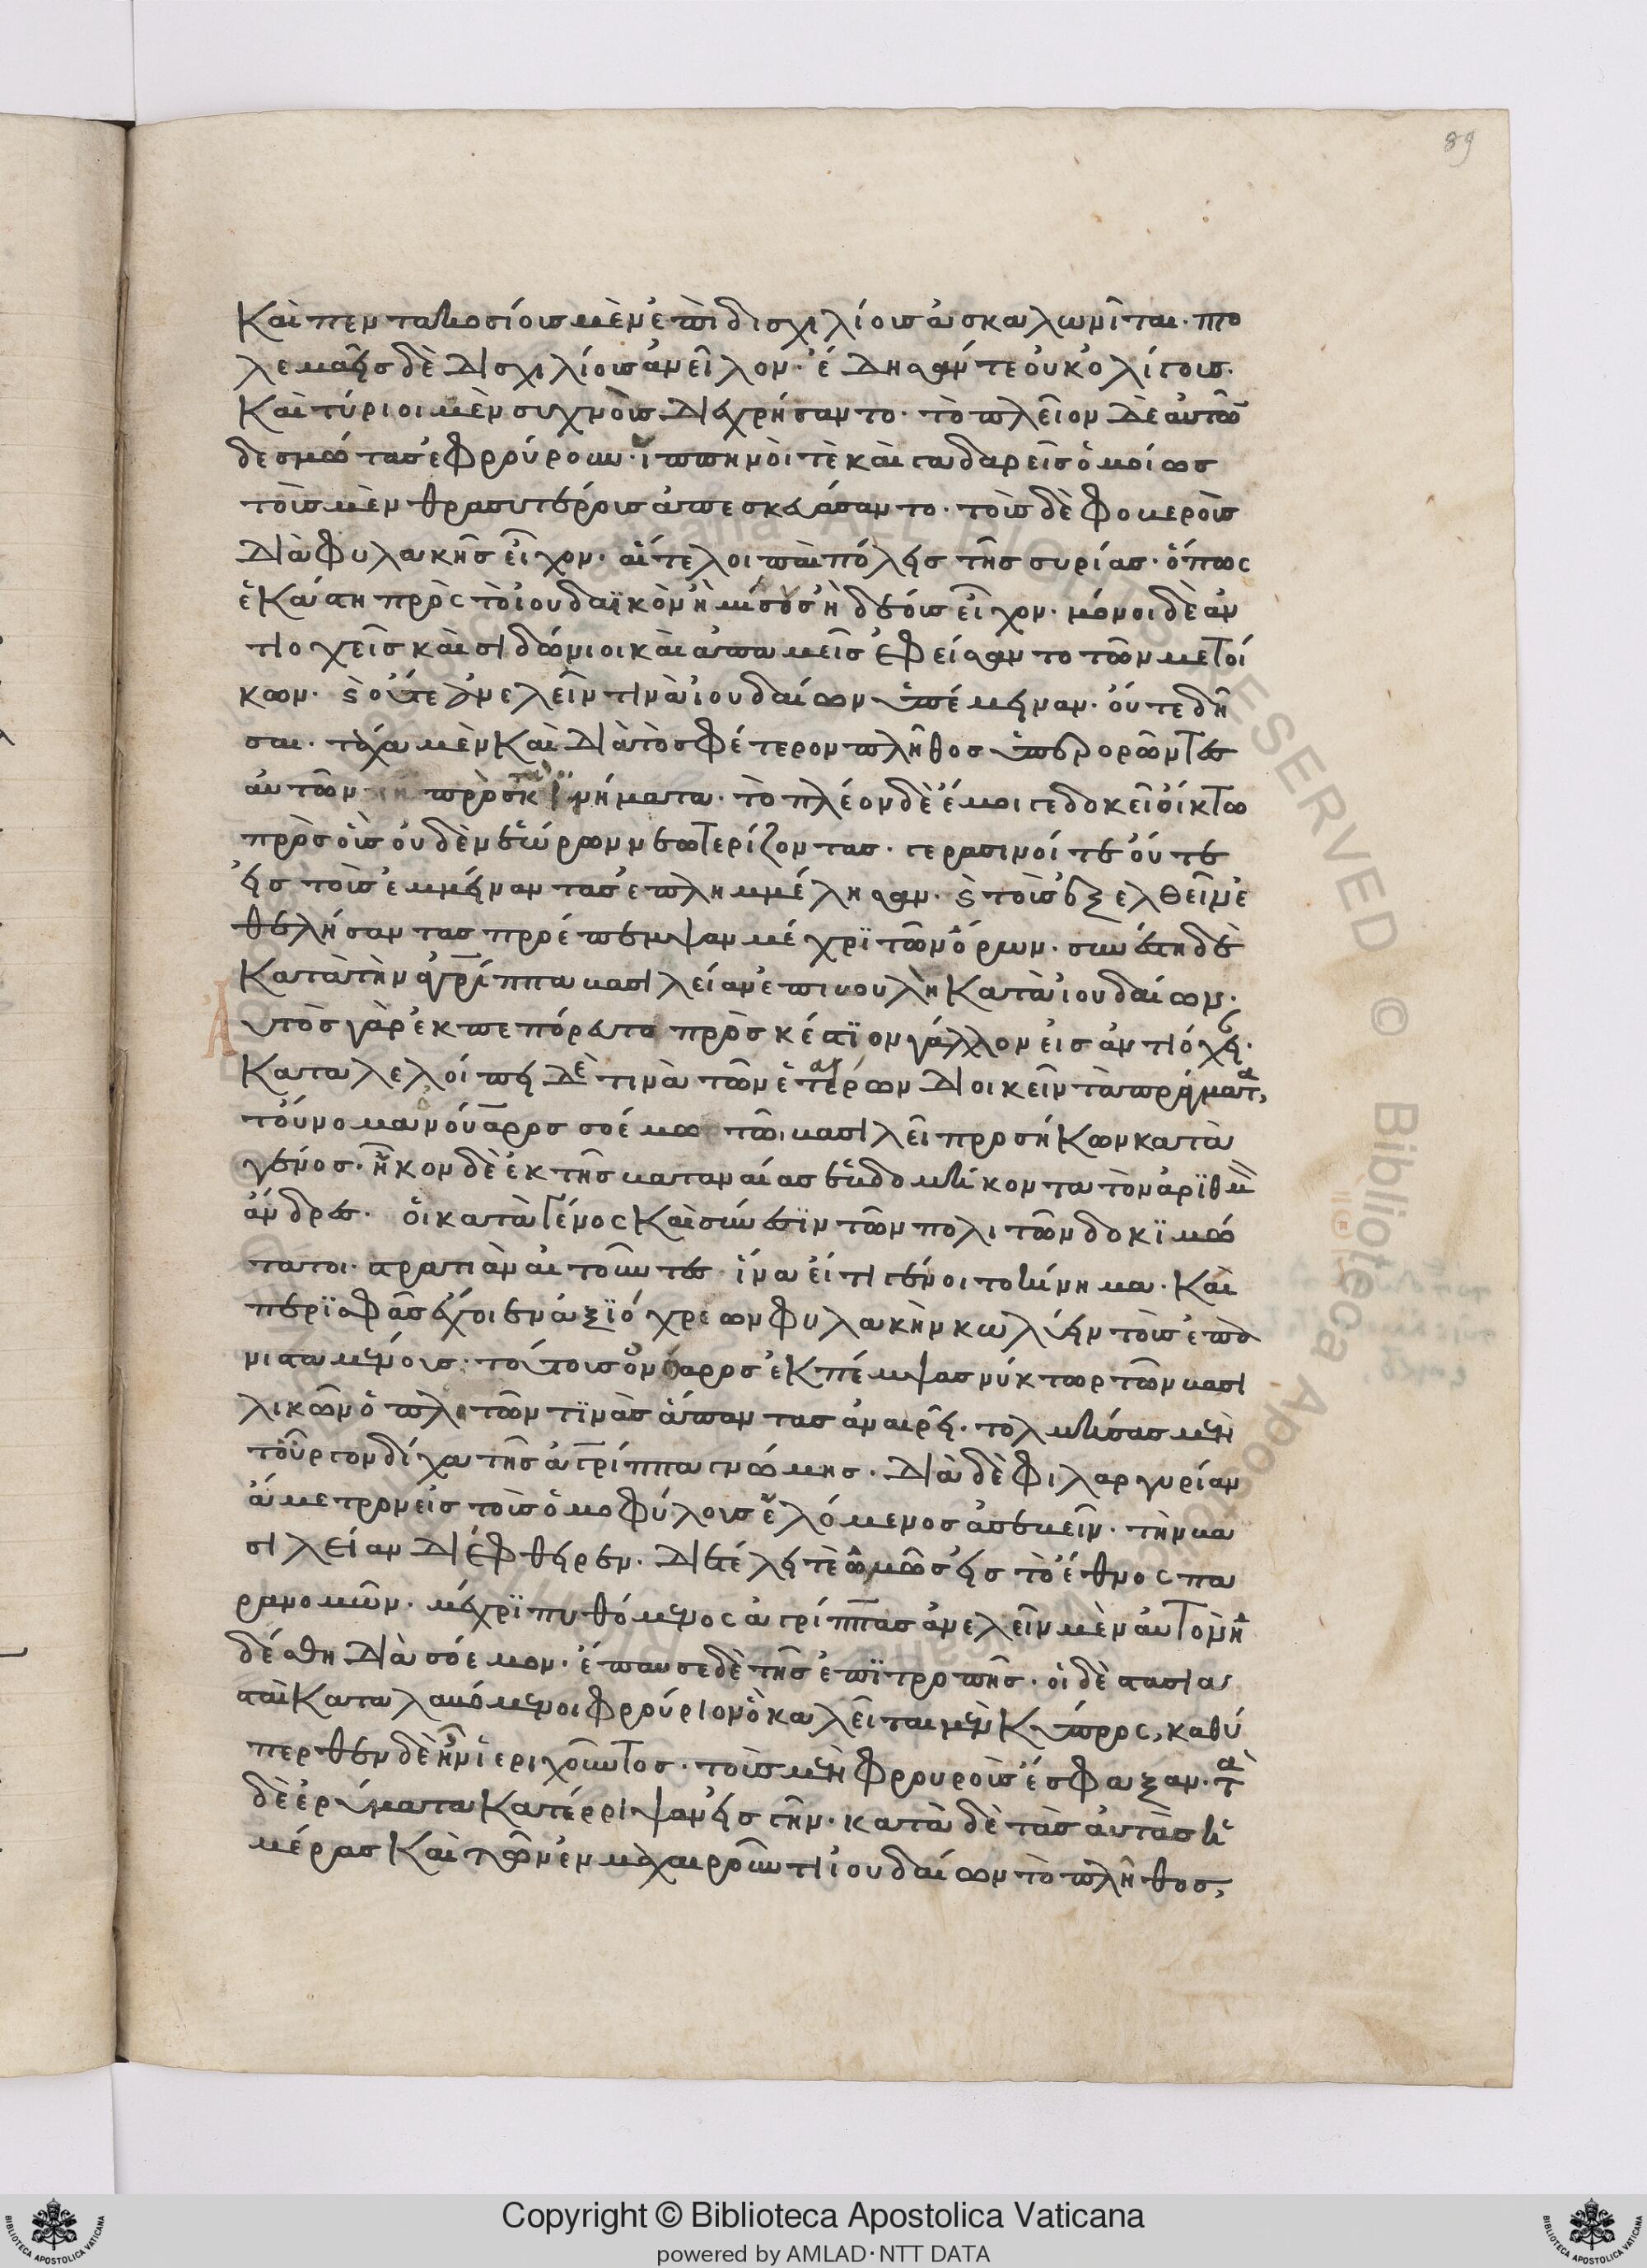 89
καὶ πεντακοσίους μὲν ἐπὶ δισχιλίοις ἀσκαλωνῖται. πτο
λεμαεῖς δὲ δισχιλίους ἀνεῖλον. ἔδησάν τε οὐκ ὀλίγους.
καὶ τύριοι μὲν συχνοὺς διεχρήσαντο. τὸ πλεῖον δὲ αὐτῶν
δεσμώτας ἐφρούρουν. ἱππηνοί τε καὶ γαδαρεῖς ὁμοίως
τοὺς μὲν θρασυτέρους ἀπεσκευάσαντο. τοὺς δὲ φοβεροὺς
διὰ φυλακῆς εἶχον. αἵ τε λοιπαὶ πόλεις τῆς συρίας. ὅπως
ἑκάστη πρὸς τὸ ἰουδαϊκὸν ἢ μίσους ἢ δέους εἶχον. μόνοι δὲ ἀν
τιοχεῖς καὶ σιδώνιοι καὶ ἀπαμεῖς ἐφείσαντο τῶν μετοί
κων. καὶ οὔτε ἀνελεῖν τινὰ ἰουδαίων ὑπέμειναν. οὔτε δῆ
σαι. τάχα μὲν καὶ διὰ τὸ σφέτερον πλῆθος ὑπερορῶντες
αὐτῶν πρὸς κινήματα. τὸ πλέον δὲ ἔμοιγε δοκεῖ οἴκτω
πρὸς οὓς οὐδὲν ἑώρων νεωτερίζοντας. γερασηνοί τε οὔτε
εἰς τοὺς ἐμμείναντας ἐπλημμέλησαν. καὶ τοὺς ἐξελθεῖν ἐ
θελήσαντας προέπεμψαν μέχρι τῶν ὅρων. συνέστη δὲ
κατὰ τὴν ἀγρίππα βασιλείαν ἐπιβουλὴ κατὰ ἰουδαίων.
Αὐτὸς γὰρ ἐκπεπόρευτο πρὸς κέστιον γάλλον εἰς ἀντιόχει.
καταλελοίπει δέ τινα τῶν ἑτέρων διοικεῖν τὰ πράγματα,
τοὔνομα νούαρος σοέμω τῶ βασιλεῖ προσήκων κατὰ
γένος. ἧκον δὲ ἐκ τῆς βαταναίας ἑβδομήκοντα τὸν ἀριθμὸν
ἄνδρες. οἱ κατὰ γένος καὶ σύνεσιν τῶν πολιτῶν δοκιμώ
τατοι. στρατιὰν αἰτοῦντες. ἵνα εἴ τι γένοιτο κίνημα. καὶ
περὶ σφᾶς ἔχοιεν ἀξιόχρεων φυλακὴν κωλύειν τοὺς ἐπα
νισταμένους. τούτους ὁ νόαρος ἐκπέμψας νύκτωρ τῶν βασι
λικῶν ὁπλιτῶν τινὰς ἅπαντας ἀναιρεῖ. τολμήσας μὲν
τοὖργον δίχα τῆς ἀγρίππα γνώμης. διὰ δὲ φιλαργυρίαν
ἄμετρον εἰς τοὺς ὁμοφύλους ἑλόμενος ἀσεβεῖν. τὴν βα
σιλείαν διέφθειρεν. διετέλει τε ὠμῶς εἰς τὸ ἔθνος πα
ρανομῶν. μέχρι πυθόμενος ἀγρίππας ἀνελεῖν μὲν αὐτὸν ἠ
δέσθη διὰ σόεμον. ἔπαυσε δὲ τῆς ἐπιτροπῆς. οἱ δὲ στασια
σταὶ καταλαβόμενοι φρούριον ὃ καλεῖται μὲν κύπρος, καθύ
περθεν δὲ ἦν ἱεριχοῦντος. τοὺς μὲν φρουροὺς ἔσφαξαν. τὰ
δὲ ἐρύματα κατέρριψαν εἰς γῆν. κατὰ δὲ τὰς αὐτὰς ἡ
μέρας καὶ τῶν ἐν μαχαιροῦντι ἰουδαίων τὸ πλῆθος,
Copyright © Biblioteca Apostolica Vaticana
powered by AMLAD·NTT DATA